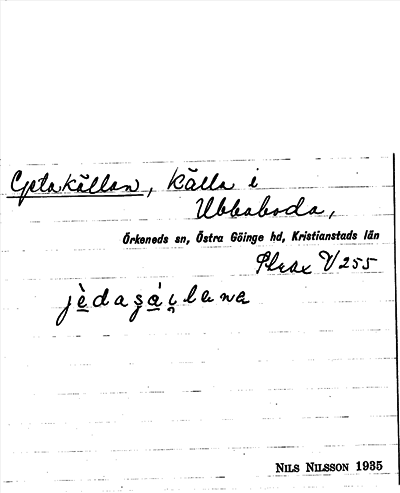 Getakällan, Källa i
Ubbaboda,
Örkeneds sn, Östra Göinge hd, Kristianstads län
V 255
Nils Nilsson 1935